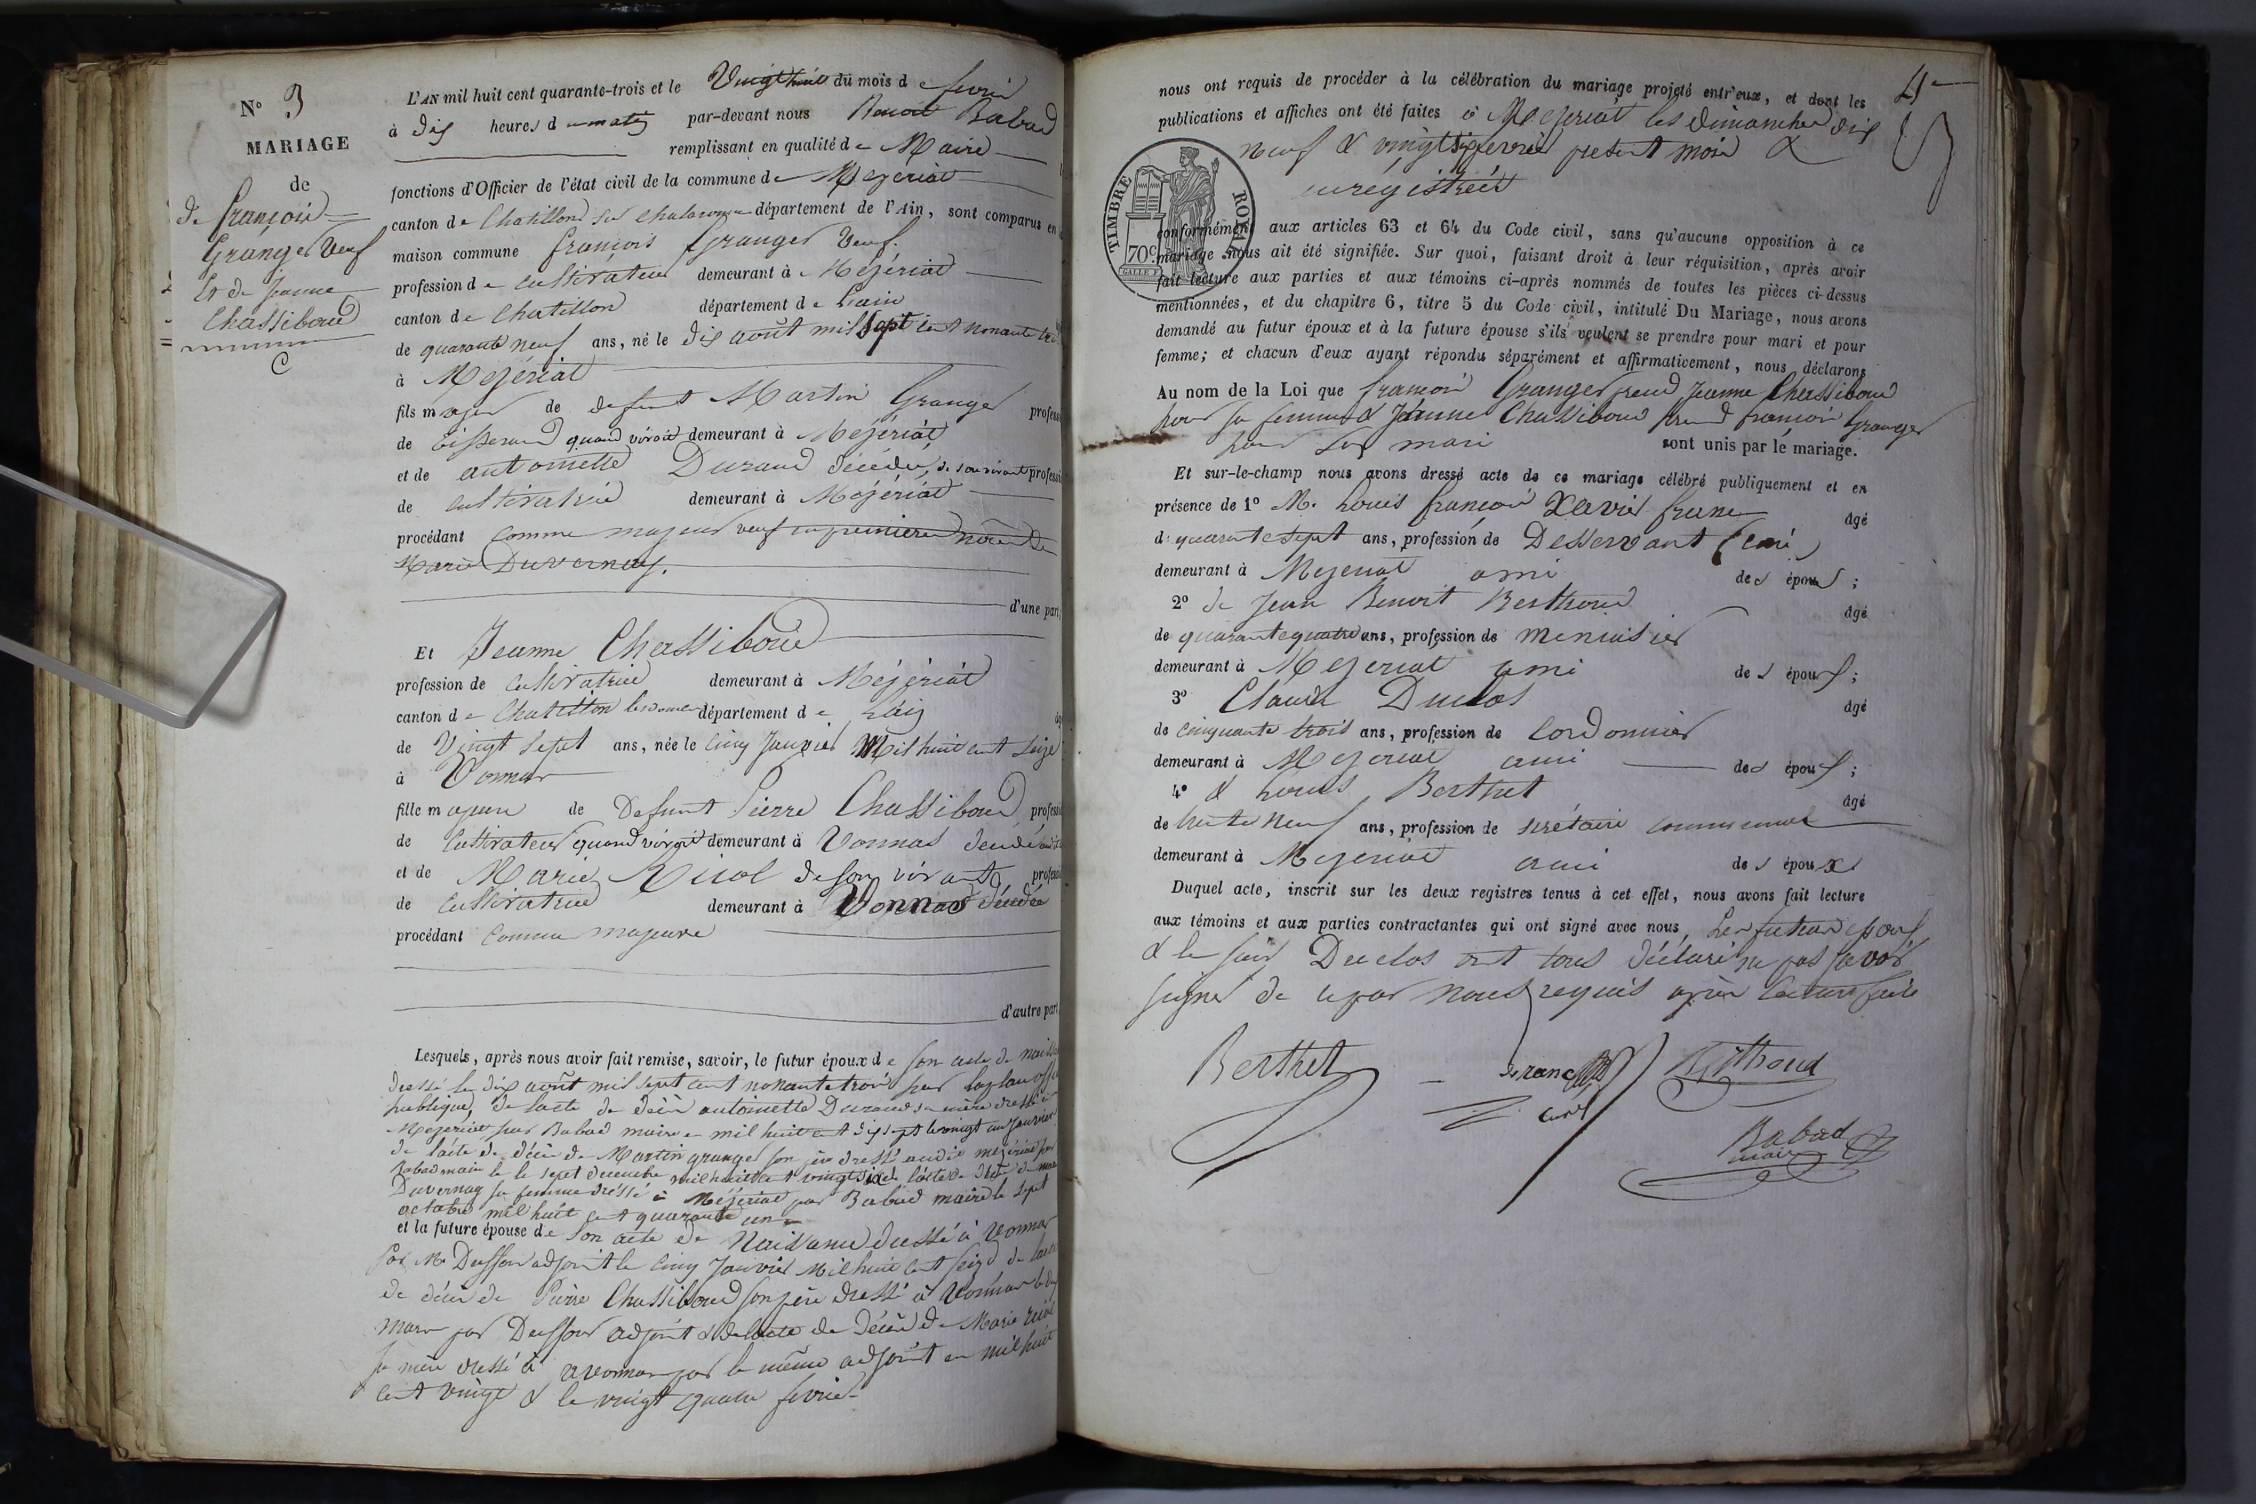 N° 3
MARIAGE
de
de françois
Granger veuf
et de Jeanne
Chassiboud
L'AN mil huit cent quarante-trois et le Vingt huit du mois de fevrier
à dix heures d u matin par-devant nous Benoit Babad
remplissant en qualité de Maire
fonctions d'Officier de l'état civil de la commune de Mezeriat
canton de Chatillon sur chalaronne département de l'Ain, sont comparus en
maison commune françois Granger Veuf.
profession de cultivateur demeurant à Mézériat
canton de Chatillon département de l'ain
de quarante neuf ans, né le dix août mil sept cent nonante trois
à Mezériat
fils majeur de defunt Martin Granger profess
de tisserand quand vivoit demeurant à Mézériat
et de antoinette Durand décédée, de son vivant profess
de cultivatrice demeurant à Mézériat
procédant comme majeur veuf en premiere noce de
Marie Duvernay.
d'une part,
Et Jeanne Chassiboud
profession de cultivatrice demeurant à Mézériat
canton de Chatillon département de l'ain
de Vingt sept ans, née le cinq Janvier Mil huit cent seize
à Vonnas
fille majeure de Defunt Pierre Chassiboud profess
de Cultivateur quand vivoit demeurant à Vonnas
et de Marie de son vivant profess
de cultivatrice demeurant à Vonnas décédée
procédant comme majeure
d'autre part,
Lesquels, après nous avoir fait remise, savoir, le futur époux de son acte de
dressé le dix août mil sept cent nonante trois par
publique, de l'acte de décès antoinette Durand sa mère dressé à
Mezeriat par Babad maire en mil huit cent dix sept le vingt un Janvier
de l'acte de décès de Martin granger son père dressé audit mézériat par
Babad maire le sept decembre mil huit cent vingt six de l'acte de décès de
Duvernay sa femme dréssé à Mézériat par Babad maire le sept
octobre mil huit cent quarante un
et la future épouse de son acte de Naissance dressé à Vonnas
par Mr adjoint le cinq Janvier Mil huit cent seize de l'acte
de décès de Pierre Chassiboud son père dressé à Vonnas
mars par adjoint & de l'acte de décès de Marie
sa mère dressé à Vonnas par le même adjoint en mil huit
cent vingt & le vingt quatre fevrier
nous ont requis de procéder à la célébration du mariage projeté entr'eux, et dont les
publications et affiches ont été faites à Mezeriat les dimanches dix
neuf & vingt six fevrier present mois &
enrégistrées
TIMBRE ROYAL
70 C.
conformément aux articles 63 et 64 du Code civil, sans qu'aucune opposition à ce
mariage nous ait été signifiée. Sur quoi, faisant droit à leur réquisition, après avoir
fait lecture aux parties et aux témoins ci-après nommés de toutes les pièces ci-dessus
mentionnées, et du chapitre 6, titre 5 du Code civil, intitulé Du Mariage, nous avons
demandé au futur époux et à la future épouse s'ils veulent se prendre pour mari et pour
femme; et chacun d'eux ayant répondu séparément et affirmativement, nous déclarons
Au nom de la Loi que francois Granger prend Jeanne Chassiboud
pour sa femme & Jeanne Chassiboud prend françois Granger
pour son mari sont unis par le mariage.
Et sur-le-champ nous avons dressé acte de ce mariage célébré publiquement et en
présence de 1° M. Louis françois Xavier âgé
d quarante sept ans, profession de Desservant (curé)
demeurant à Mezeriat ami des époux ;
2° de Jean Benoit Berthoud âgé
de quarante quatre ans, profession de menuisier
demeurant à Mezeriat ami des époux ;
3° Claude Duclos âgé
de cinquante trois ans, profession de cordonnier
demeurant à Mezeriat ami des époux ;
4° & Louis Berthet âgé
de trente neuf ans, profession de secrétaire communal
demeurant à Mezeriat ami des époux
Duquel acte, inscrit sur les deux registres tenus à cet effet, nous avons fait lecture
aux témoins et aux parties contractantes qui ont signé avec nous, Les futurs epoux
& le said Duclos ont tous déclaré ne pas savoir
signer de ce par nous requis après lecture faite
Berthet
curé
Berthoud
Babad
maire